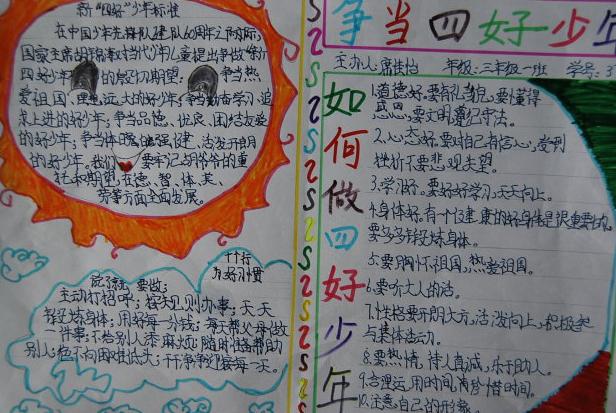 新“四好”少年标准
在中国少年先锋队建队60周年之际,
国家主席胡锦涛对当代少年儿童提出争做“争当
四好少年”的殷切期望。争当热
爱祖国、理想远大的好少年;争当勤奋学习、追
求上进的好少年;争当品德优良、团结友爱
的好少年;争当体魄强健、活泼开朗
的好少年。我们要牢记胡爷爷的重
托和期望,在德、智、体、美、
劳等方面全面发展。
好习惯
主动打招呼;按规则办事;天天
锻炼身体;用好每一分钱;每天帮父母做
一件事;不给别人添麻烦;随时准备帮助
别人;绝不向困难低头;干干净净迎接每一天。
争当四好少年
主办人:席佳怡 年级:三年级一班 学号:
如何做四好少年
1.道德好。要有礼貌,要懂得
感恩,要文明遵纪守法。
2.心态好。要对自己有信心,受到
挫折不要悲观失望。
3.学习好。要好好学习,天天向上。
4.身体好。有一个健康的好身体是很重要的。
要多多锻炼身体。
5.要胸怀祖国,热爱祖国。
6.要听大人的话。
7.性格要开朗大方,活泼向上,积极参
与集体活动。
8.要热情,待人真诚,乐于助人。
9.合理运用时间,珍惜时间。
10.注意自己的形象。